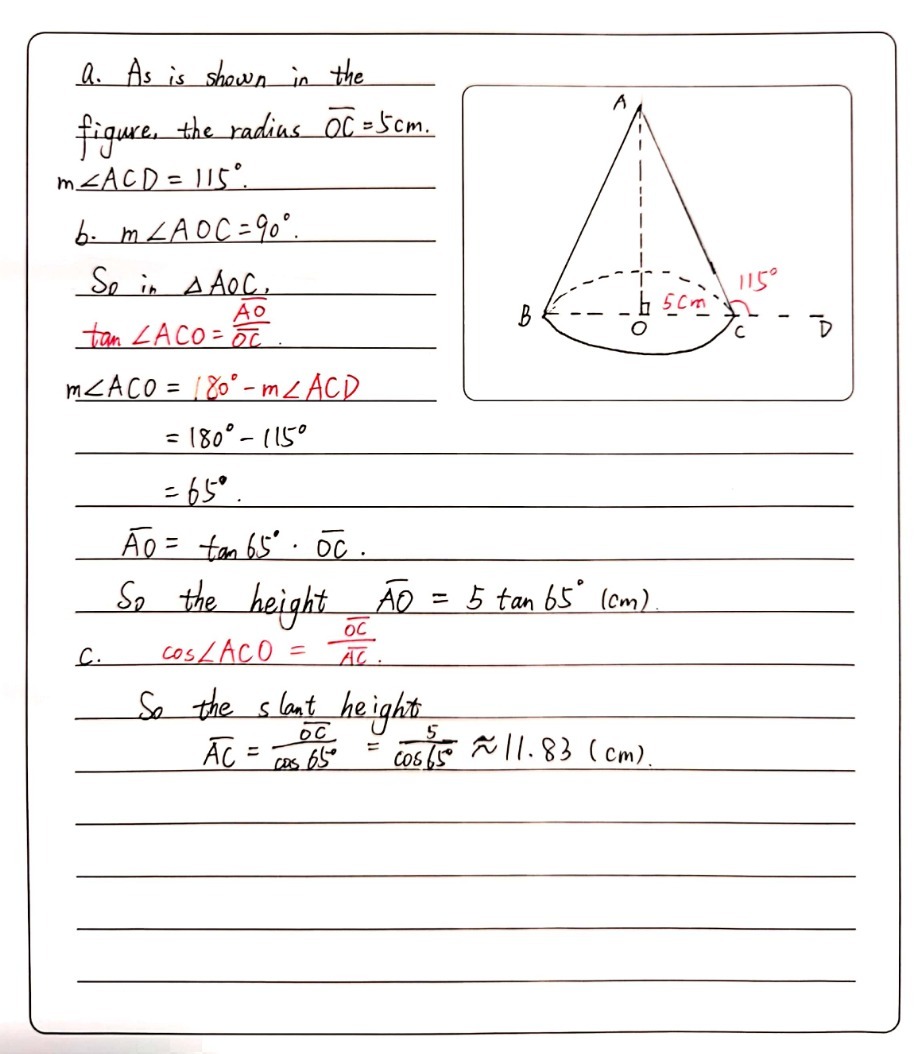 a. As is shown in the
figure, the radius O̅C̅ = 5cm.
m∠ACD = 115°.
b. m∠AOC = 90°.
So in △AOC,
tan ∠ACO = A̅O̅/O̅C̅.
m∠ACO = 180° - m∠ACD
= 180° - 115°
= 65°.
A̅O̅ = tan 65° · O̅C̅.
So the height A̅O̅ = 5 tan 65° (cm).
c. cos∠ACO = O̅C̅/A̅C̅.
So the slant height
A̅C̅ = O̅C̅/cos 65° = 5/cos 65° ≈ 11.83 (cm).
A
115°
5cm
B
O
C
D